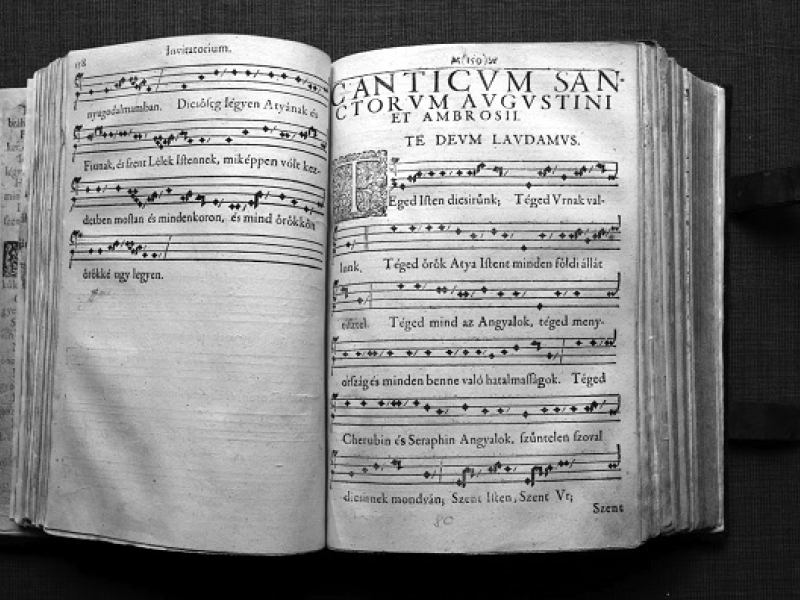 98
Invitatorium.
nyugodalmamban. Dicsőség légyen Atyának és
Fiunak, és szent Lélek Istennek, miképpen vólt kez-
detben mostan és mindenkoron, és mind örökkön
örökké ugy legyen.
(150)
CANTICVM SAN-
CTORVM AVGVSTINI
ET AMBROSII.
TE DEVM LAVDAMVS.
TEged Isten dicsirűnk; Téged Vrnak val-
lunk. Téged örök Atya Istent minden földi állát
tisztel. Téged mind az Angyalok, téged meny-
ország és minden benne való hatalmasságok. Téged
Cherubin és Seraphin Angyalok, szűntelen szoval
dicsirnek mondván; Szent Isten, Szent Vr;
Szent
80